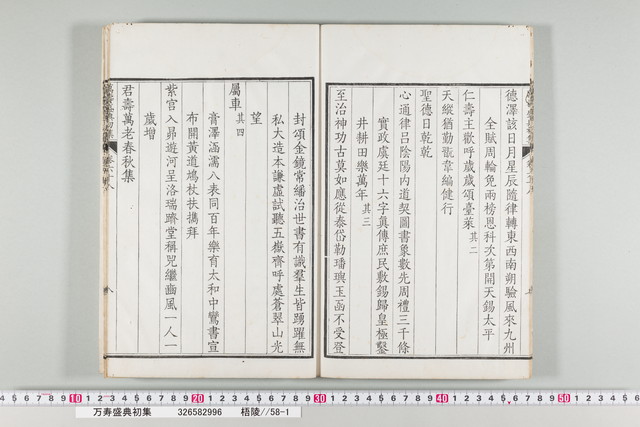 德澤該日月星辰隨律轉東西南朔驗風來九州
全賦周輪免兩榜恩科次第開天錫太平
仁壽主歡呼歲歲頌臺萊 其二
天縱猶勤翫韋編健行
聖德日乾乾
心通律呂陰陽內道契圖書象數先周禮三千條
實政虞廷十六字真傳庶民敷錫歸皇極鑿
井耕田樂萬年 其三
至治神功古莫如應從泰岱勒璠璵玉函不受登
封頌金鏡常繙治世書有識羣生皆踴躍無
私大造本謙虛試聽五嶽齊呼處蒼翠山光
望
屬車 其四
膏澤涵濡八表同百年樂有太和中鸞書宣
布開黃道鳩杖扶攜拜
紫宮入昴遊河呈洛瑞躋堂稱兕繼豳風一人一
歲增
君壽萬老春秋集
万寿盛典初集 326582996 梧陵//58-1